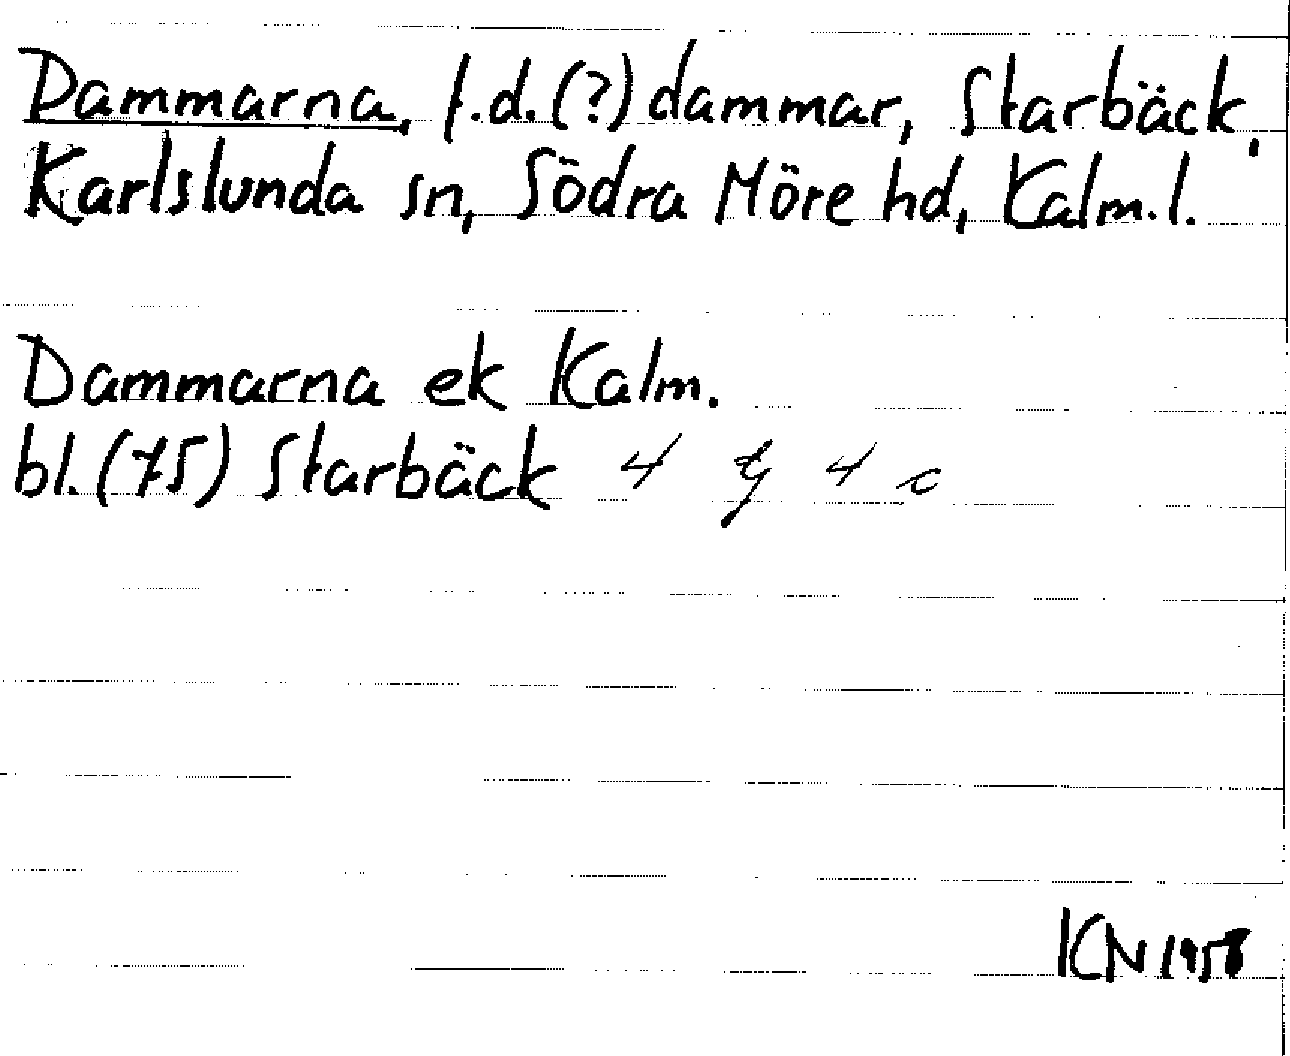 Dammarna, f.d.(?) dammar, Starbäck,
Karlslunda sn, Södra Möre hd, Kalm.l.
Dammarna ek Kalm.
bl.(75) Starbäck 4 g 4 c
KN 1958